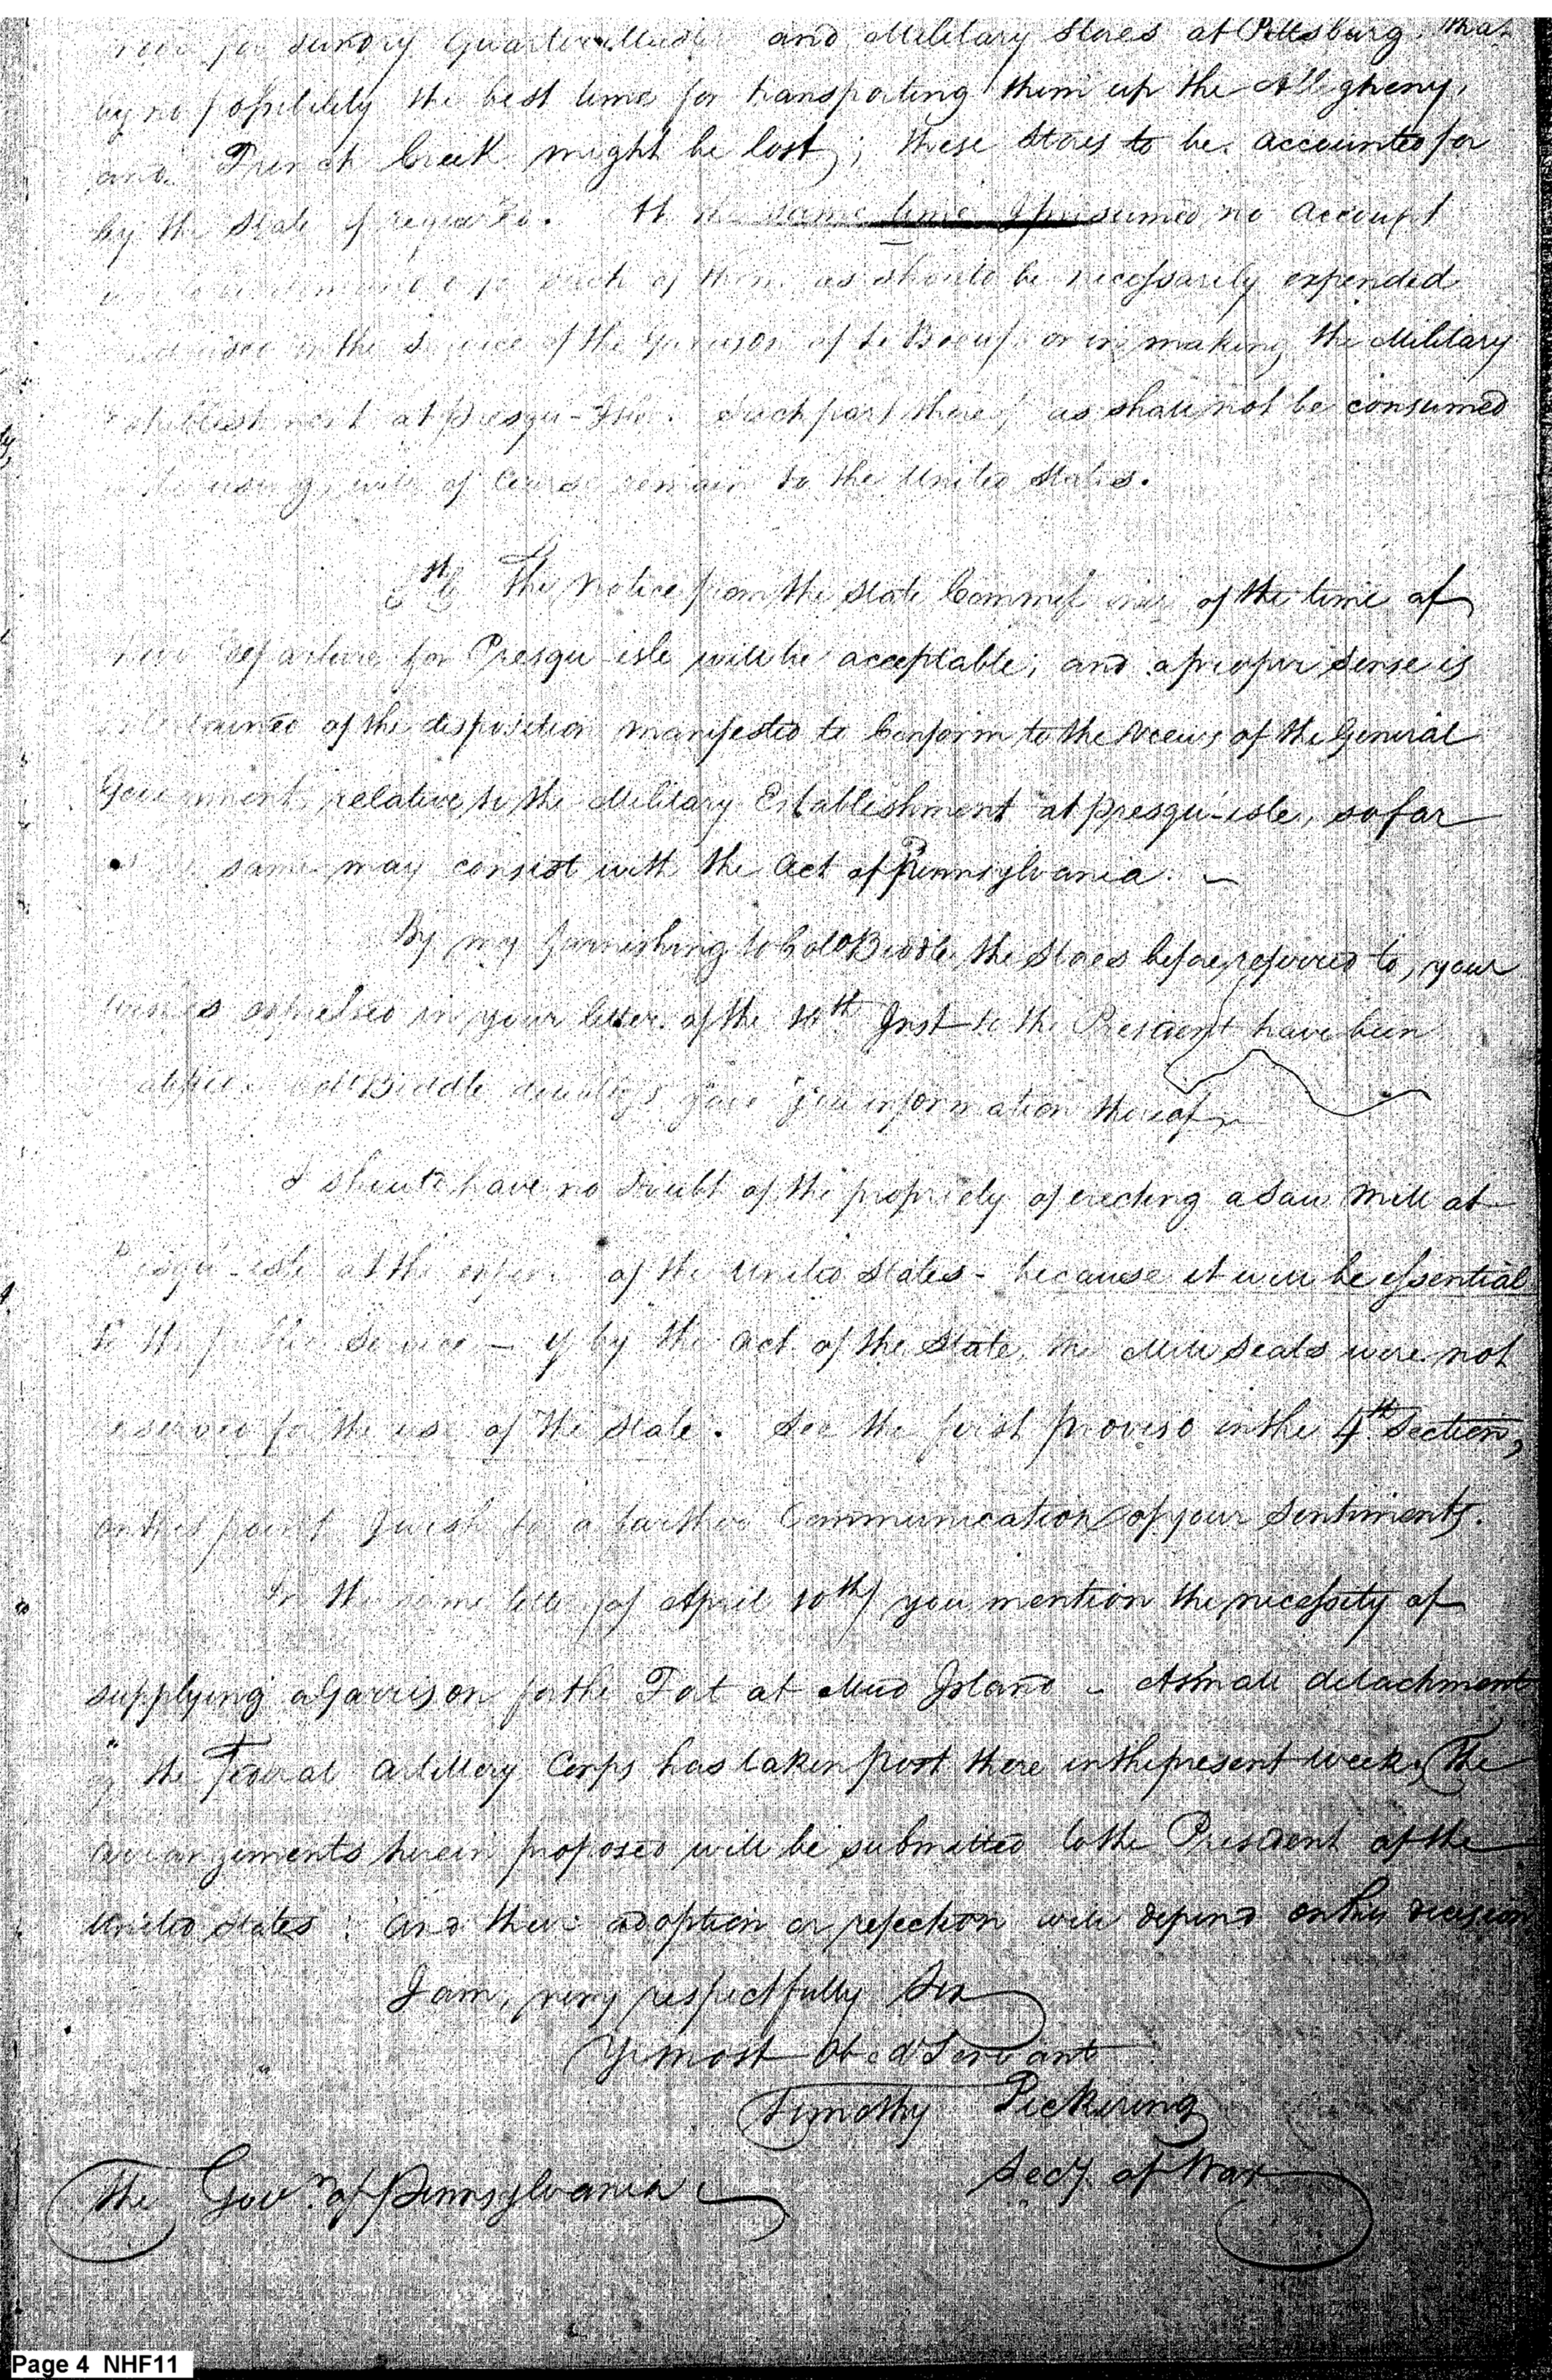 for sundry Quarter Master and Military Stores at Pittsburg, that
by no possibility the best time for transporting them up the Allegheny,
and French Creek might be lost; these Stores to be accounted for
by the State if required. At the same time I presumed no account
such of them as should be necessarily expended
in the service of the Garrison of Le Boeuf or in making the Military
Establishment at Presqu-Isle. Such part thereof as shall not be consumed
in the using, will of course remain to the United States.
6th The notice from the State Commissioners of the time of
their departure for Presqu isle will be acceptable; and a proper sense is
entertained of the disposition manifested to Conform to the views of the General
Government, relative to the Military Establishment at Presqu-isle, so far
same may consist with the Act of Pennsylvania. —
By my furnishing to Colo Biddle, the Stores before referred to, your
wishes expressed in your letter of the 10th Inst to the President have been
Colo Biddle doubtless gave you information thereof
I should have no doubt of the propriety of erecting a Saw Mill at
Presqu-isle at the expence of the United States - because it will be essential
to the public service — if by the act of the State, the Mill seats were not
reserved for the use of the State. See the first proviso in the 4th Section,
on this point I wish for a farther Communication of your Sentiments.
In the same letter (of April 10th) you mention the necessity of
supplying a Garrison for the Fort at Mud Island - A small detachment
of the Federal Artillery Corps has taken post there in the present week. The
arrangements herein proposed will be submitted to the President of the
United States: and their adoption or rejection will depend on his decision
I am, very respectfully Sir
Yr most Obed Servant
Timothy Pickering
Secy. of War
The Govr. of Pennsylvania
Page 4 NHF11